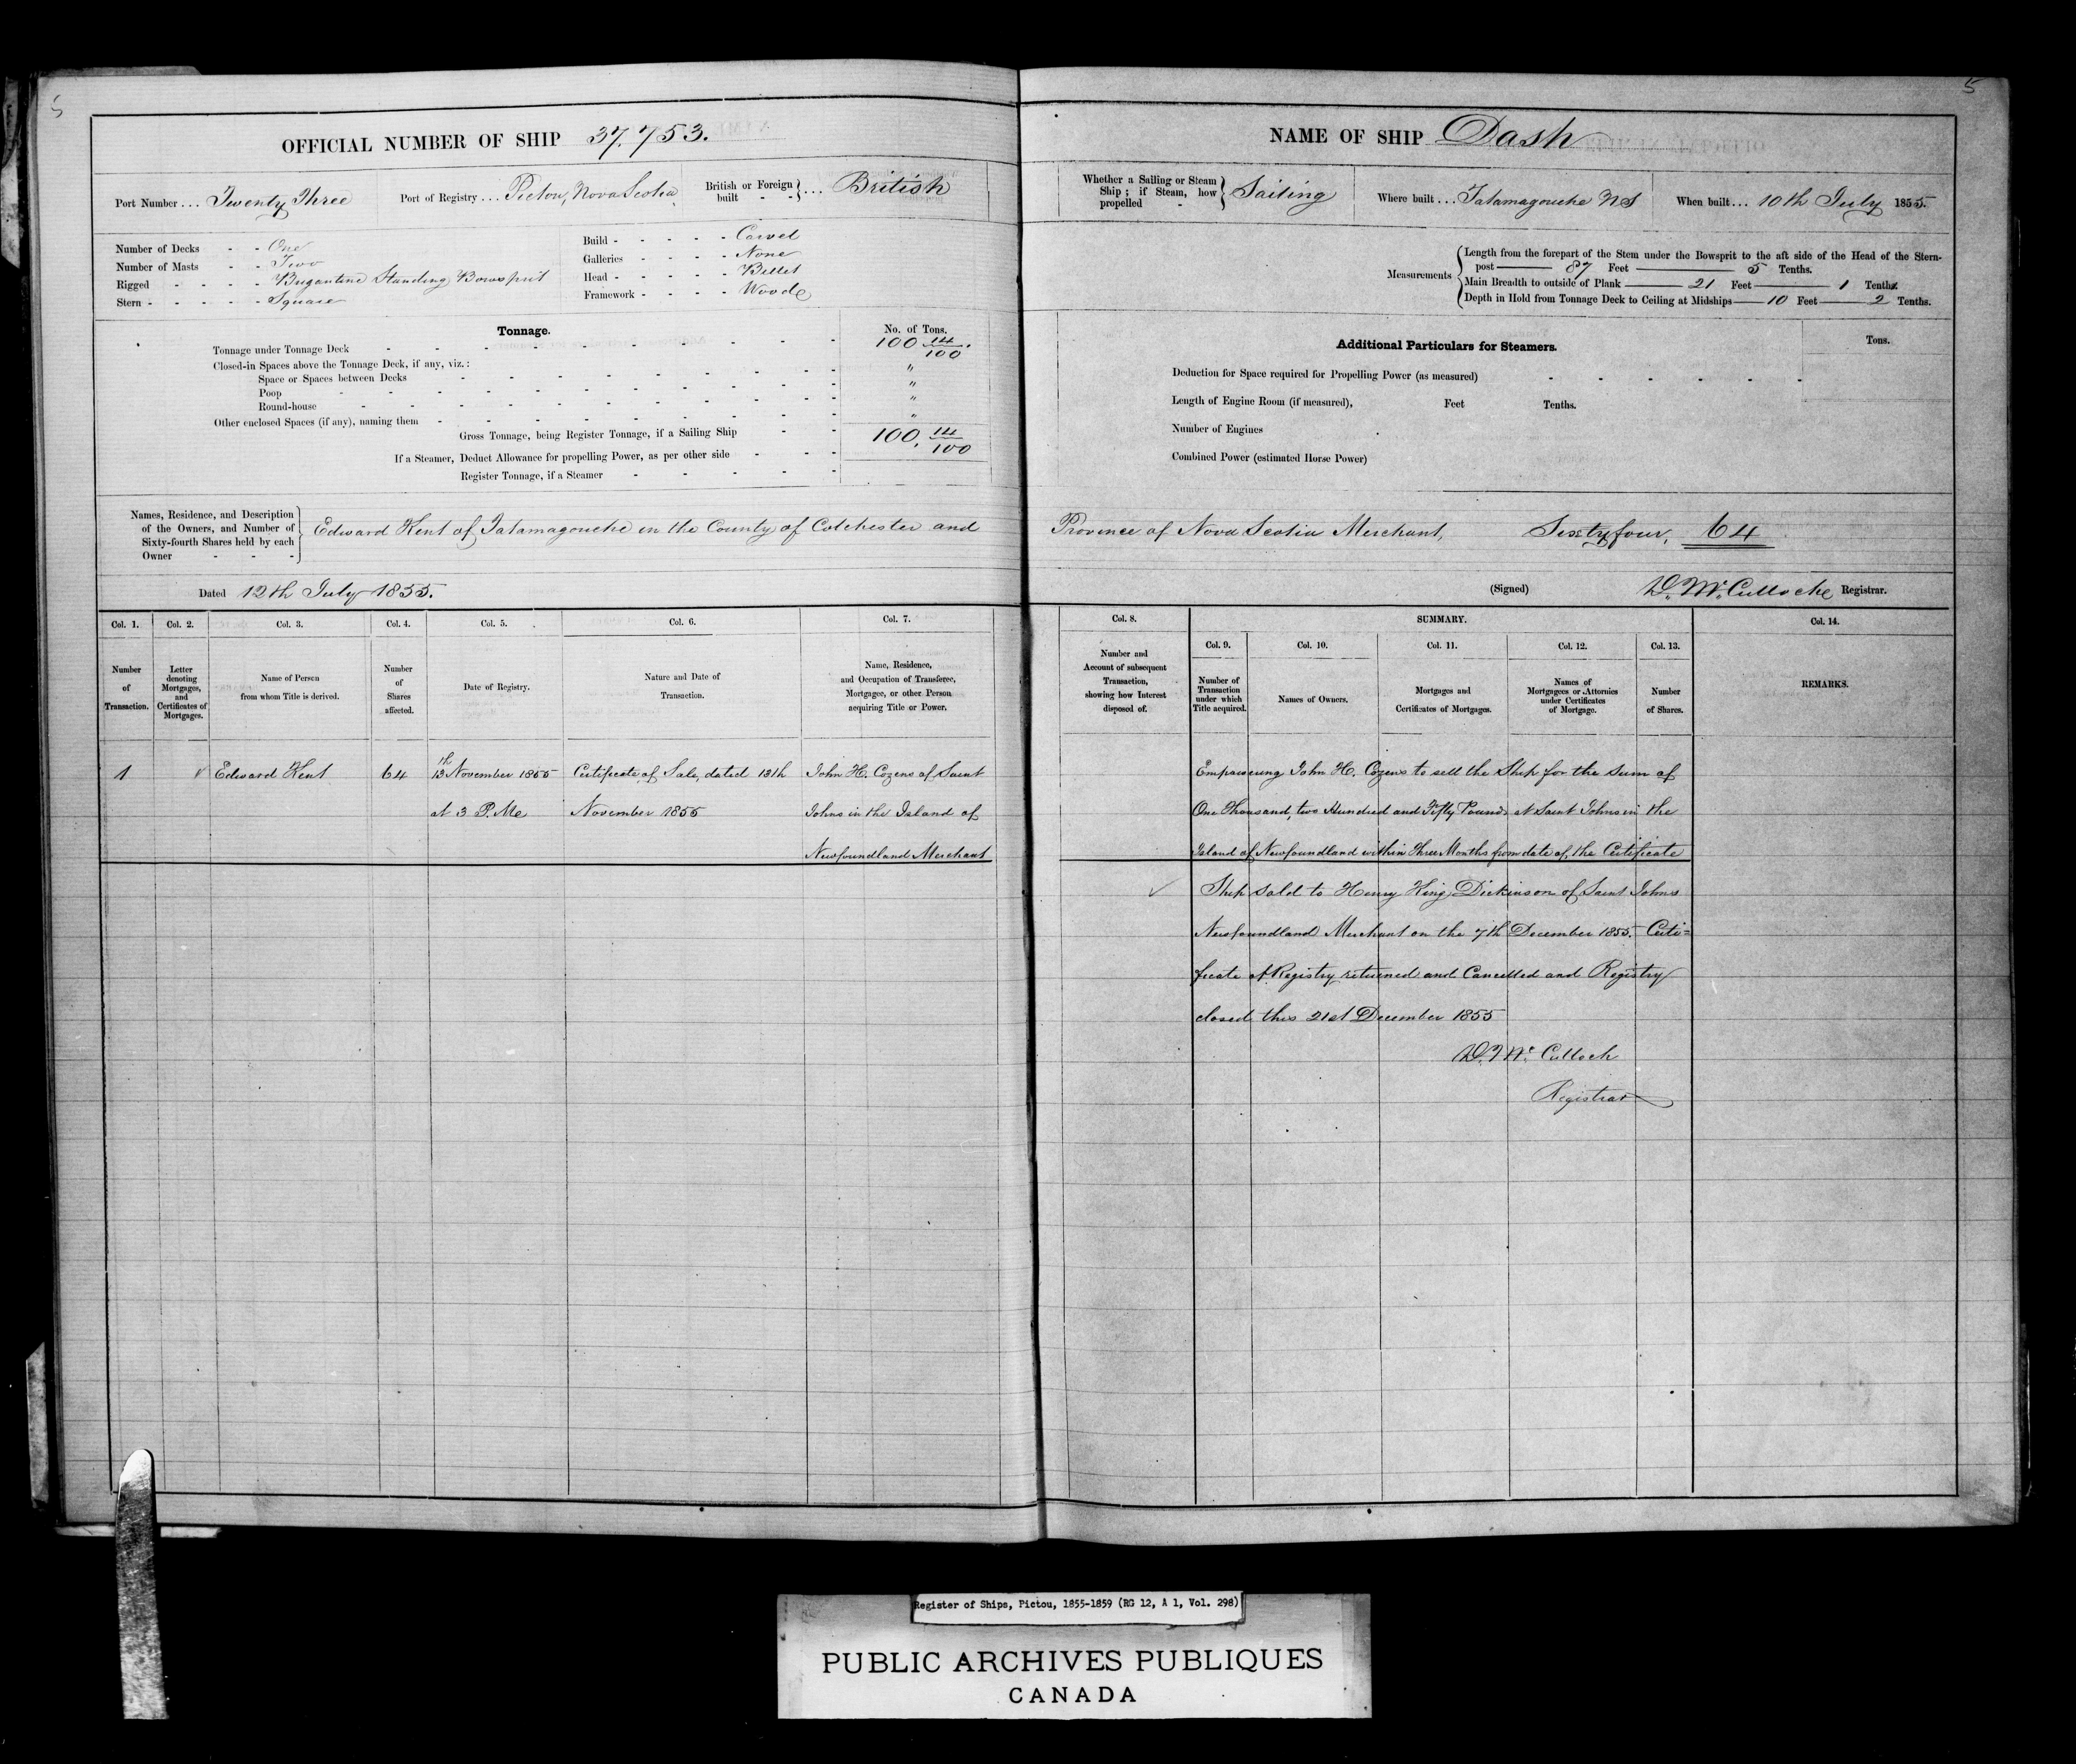 5
OFFICIAL NUMBER OF SHIP 37.753.
Port Number ... Twenty Three
Port of Registry ... Pictou, Nova Scotia
British or Foreign built - - } ... British
Number of Decks - - One
Number of Masts - - Two
Rigged - - - - Brigantine Standing Bowsprit
Stern - - - - - Square
Build - - - - - Carvel
Galleries - - - - None
Head - - - - - Billet
Framework - - - - Wood
Tonnage.
No. of Tons.
Tonnage under Tonnage Deck 100 14/100.
Closed-in Spaces above the Tonnage Deck, if any, viz.: "
Space or Spaces between Decks "
Poop "
Round-house "
Other enclosed Spaces (if any), naming them
Gross Tonnage, being Register Tonnage, if a Sailing Ship 100. 14/100
If a Steamer, Deduct Allowance for propelling Power, as per other side
Register Tonnage, if a Steamer
Names, Residence, and Description
of the Owners, and Number of
Sixty-fourth Shares held by each
Owner
Edward Kent of Tatamagouche in the County of Colchester and
Dated 12th July 1855.
Col. 1. Col. 2. Col. 3. Col. 4. Col. 5. Col. 6. Col. 7.
Number
of
Transaction.
Letter
denoting
Mortgages,
and
Certificates of
Mortgages.
Name of Person
from whom Title is derived.
Number
of
Shares
affected.
Date of Registry.
Nature and Date of
Transaction.
Name, Residence,
and Occupation of Transferee,
Mortgagee, or other Person
acquiring Title or Power.
1 Edward Kent 64 13th November 1855 Certificate of Sale, dated 13th John H. Cozens of Saint
at 3 P. M. November 1855 Johns in the Island of
Newfoundland Merchant
5
NAME OF SHIP Dash
Whether a Sailing or Steam
Ship; if Steam, how
propelled -
Sailing
Where built ... Tatamagouche NS
When built ... 10th July 1855.
Measurements
Length from the forepart of the Stem under the Bowsprit to the aft side of the Head of the Stern-
post 87 Feet 5 Tenths.
Main Breadth to outside of Plank 21 Feet 1 Tenths.
Depth in Hold from Tonnage Deck to Ceiling at Midships 10 Feet 2 Tenths.
Additional Particulars for Steamers.
Tons.
Deduction for Space required for Propelling Power (as measured)
Length of Engine Room (if measured), Feet Tenths.
Number of Engines
Combined Power (estimated Horse Power)
Province of Nova Scotia Merchant, Sixty four, 64
(Signed) D. McCulloche Registrar.
Col. 8.
Number and
Account of subsequent
Transaction,
showing how Interest
disposed of.
SUMMARY.
Col. 9. Col. 10. Col. 11. Col. 12. Col. 13.
Number of
Transaction
under which
Title acquired.
Names of Owners.
Mortgages and
Certificates of Mortgages.
Names of
Mortgagees or Attornies
under Certificates
of Mortgage.
Number
of Shares.
Col. 14.
REMARKS.
Empowering John H. Cozens to sell the Ship for the sum of
One Thousand, two Hundred and Fifty Pounds at Saint Johns in the
Island of Newfoundland within Three Months from date of the Certificate
Ship sold to Henry King Dickinson of Saint Johns
Newfoundland Merchant on the 7th December 1855. Certi=
ficate of Registry returned and Cancelled and Registry
closed this 21st December 1855
Mc Culloch
Registrar
Register of Ships, Pictou, 1855-1859 (RG 12, A 1, Vol. 298)
PUBLIC ARCHIVES PUBLIQUES
CANADA